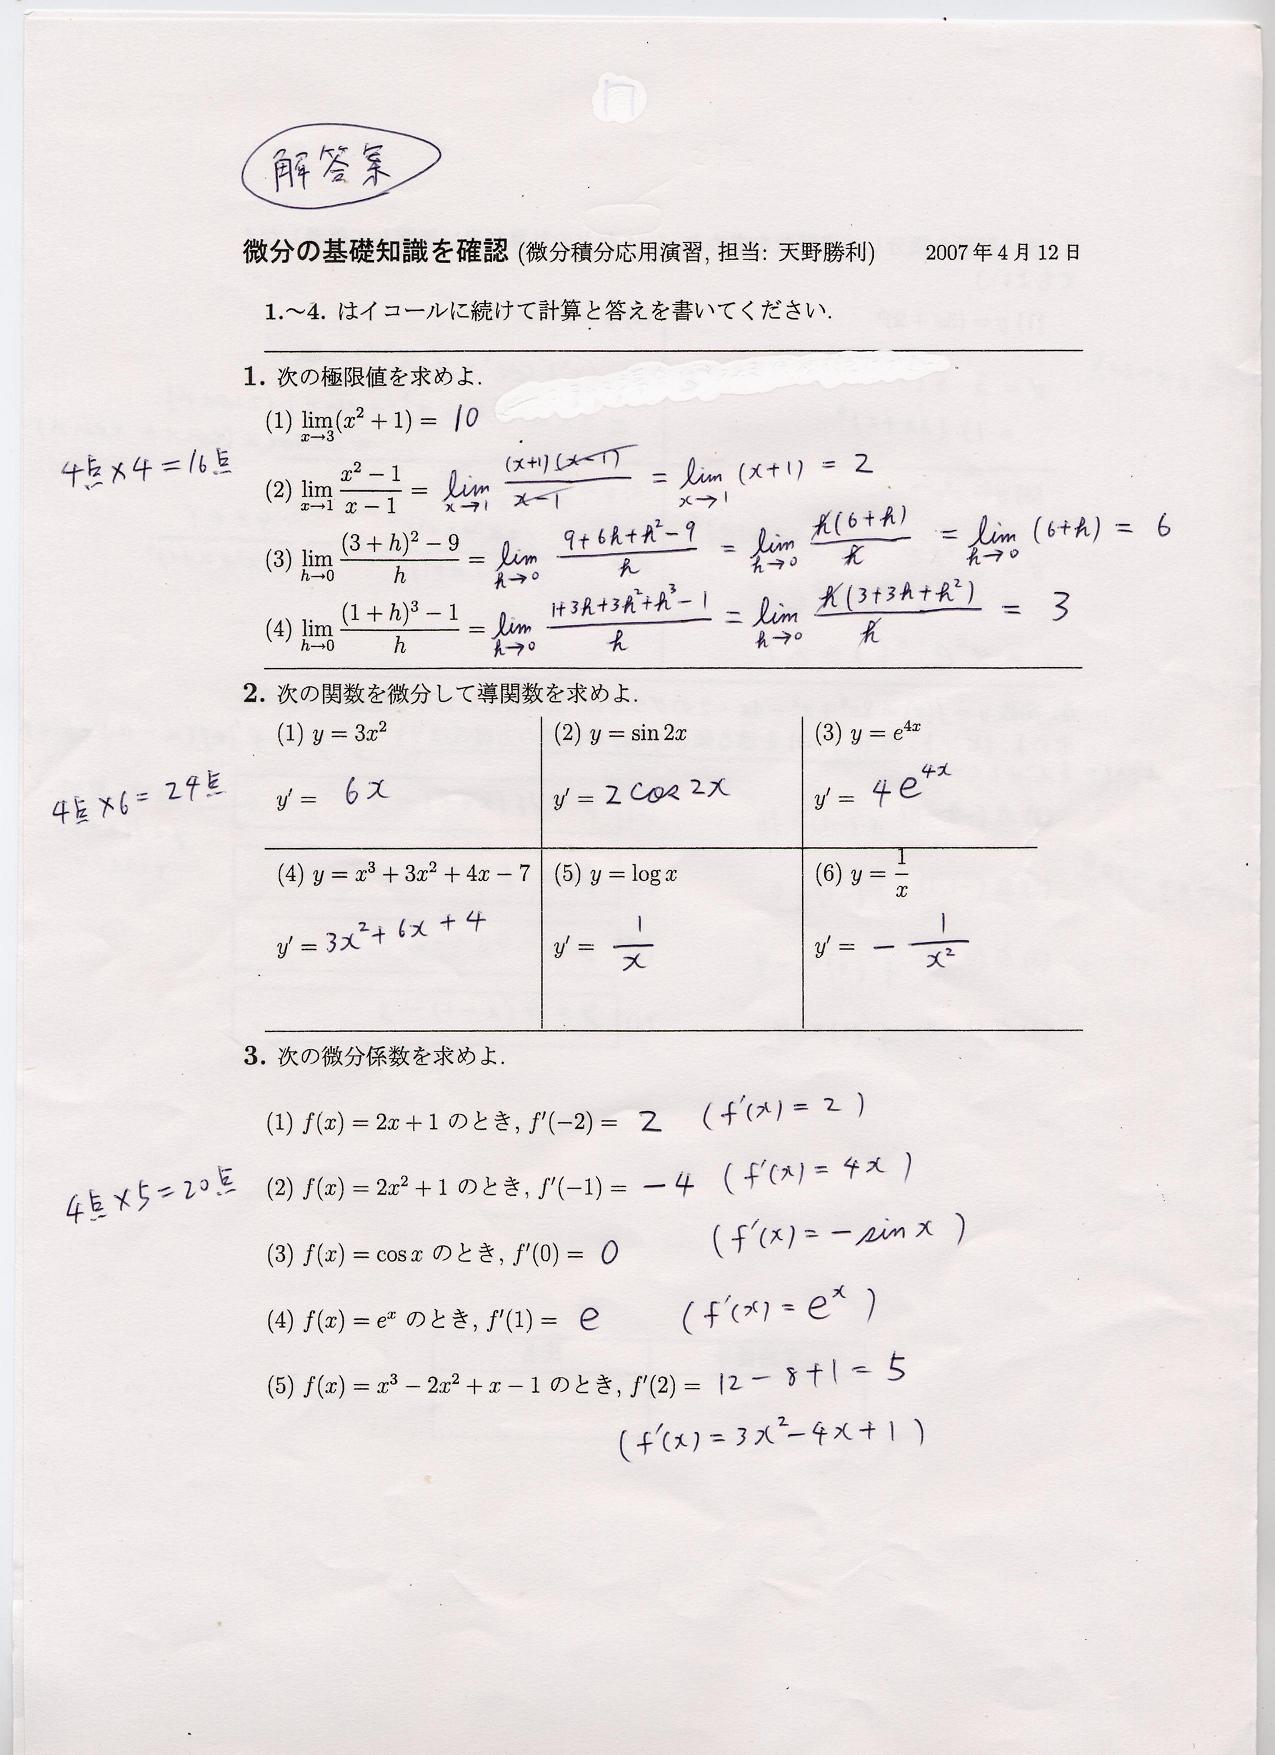 解答案
微分の基礎知識を確認 (微分積分応用演習, 担当: 天野勝利) 2007年4月12日
1.～4. はイコールに続けて計算と答えを書いてください.
1. 次の極限値を求めよ.
(1) lim_{x→3}(x² + 1) = 10
4点×4=16点
(2) lim_{x→1} (x² − 1)/(x − 1) = lim_{x→1} (x+1)(x−1)/(x−1) = lim_{x→1} (x+1) = 2
(3) lim_{h→0} ((3 + h)² − 9)/h = lim_{h→0} (9+6h+h²−9)/h = lim_{h→0} h(6+h)/h = lim_{h→0} (6+h) = 6
(4) lim_{h→0} ((1 + h)³ − 1)/h = lim_{h→0} (1+3h+3h²+h³−1)/h = lim_{h→0} h(3+3h+h²)/h = 3
2. 次の関数を微分して導関数を求めよ.
(1) y = 3x² (2) y = sin 2x (3) y = e^{4x}
4点×6=24点
y′ = 6x y′ = 2cos2x y′ = 4e^{4x}
(4) y = x³ + 3x² + 4x − 7 (5) y = log x (6) y = 1/x
y′ = 3x²+6x+4 y′ = 1/x y′ = −1/x²
3. 次の微分係数を求めよ.
(1) f(x) = 2x + 1 のとき, f′(−2) = 2 (f′(x)=2)
4点×5=20点
(2) f(x) = 2x² + 1 のとき, f′(−1) = −4 (f′(x)=4x)
(3) f(x) = cos x のとき, f′(0) = 0 (f′(x)=−sin x)
(4) f(x) = e^x のとき, f′(1) = e (f′(x)=e^x)
(5) f(x) = x³ − 2x² + x − 1 のとき, f′(2) = 12−8+1=5
(f′(x)=3x²−4x+1)